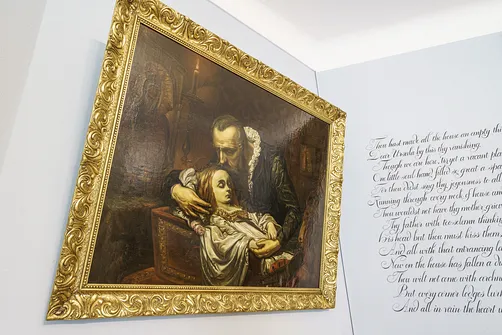 Thou hast made all the house an empty thi
Dear Ursula by this thy vanishing.
Though we are here, 'tis yet a vacant pla
One little soul had filled so great a spa
For thou didst sing thy joyousness to all
Running through every nook of house an
Thou wouldst not have thy mother griev
Thy father with too solemn thinkin
His head but thou must kiss them,
And all with that entrancing la
Now on the house has fallen a du
Thou wilt not come with archne
But every corner lodges lur
And all in vain the heart